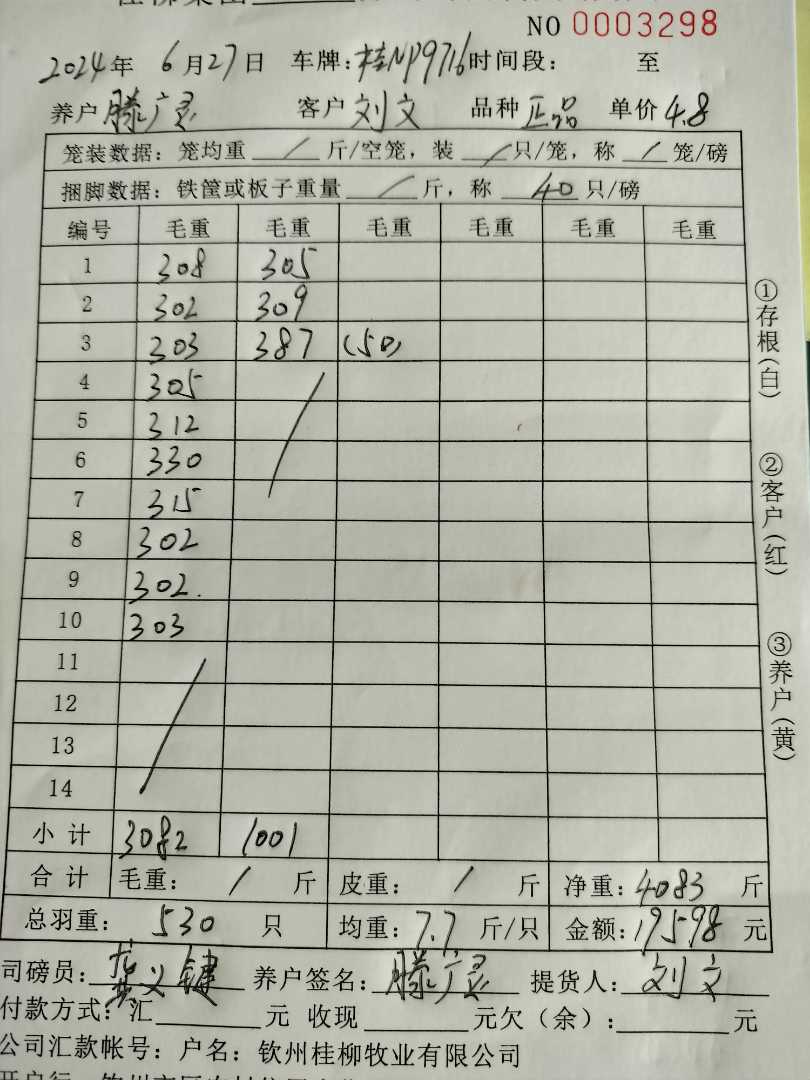 桂柳集团
NO 0003298
2024年 6月27日 车牌：桂NP9716 时间段： 至
养户 滕广灵 客户 刘文 品种 正品 单价 4.8
笼装数据：笼均重 / 斤/空笼，装 / 只/笼，称 / 笼/磅
捆脚数据：铁筐或板子重量 / 斤，称 40 只/磅
编号 毛重 毛重 毛重 毛重 毛重 毛重
1 308 305
2 302 309
3 303 387 (50)
4 305
5 312
6 330
7 315
8 302
9 302.
10 303
11
12
13
14
小计 3082 1001
合计 毛重： / 斤 皮重： / 斤 净重：4083 斤
总羽重： 530 只 均重：7.7 斤/只 金额：19598 元
司磅员： 义键 养户签名：滕广灵 提货人：刘文
付款方式：汇 元 收现 元欠（余）： 元
公司汇款帐号：户名：钦州桂柳牧业有限公司
①存根(白)
②客户(红)
③养户(黄)